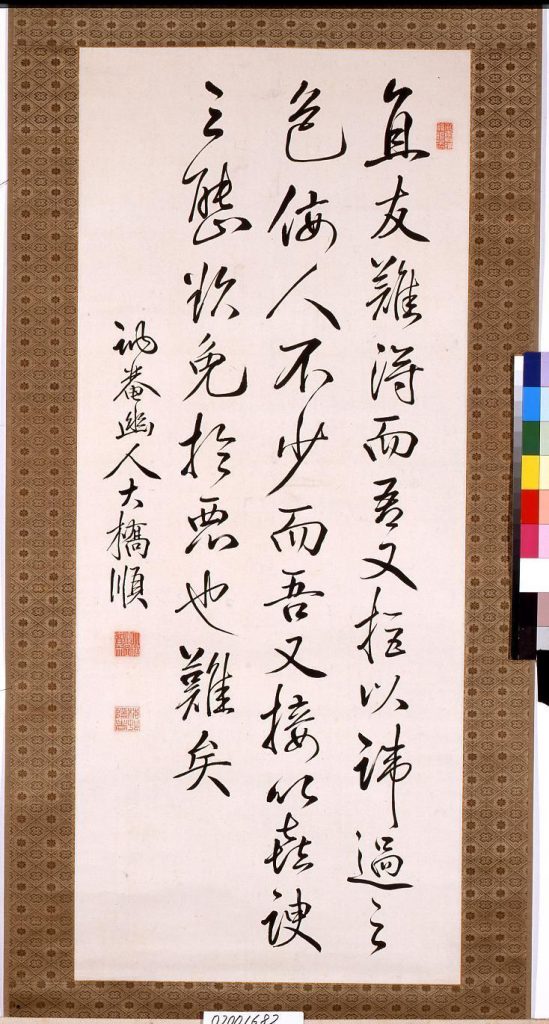 直友難得而吾又拒以諱過之
色佞人不少而吾又接以喜諛
之態欲免於惡也難矣
訥菴幽人大橋順
02001682